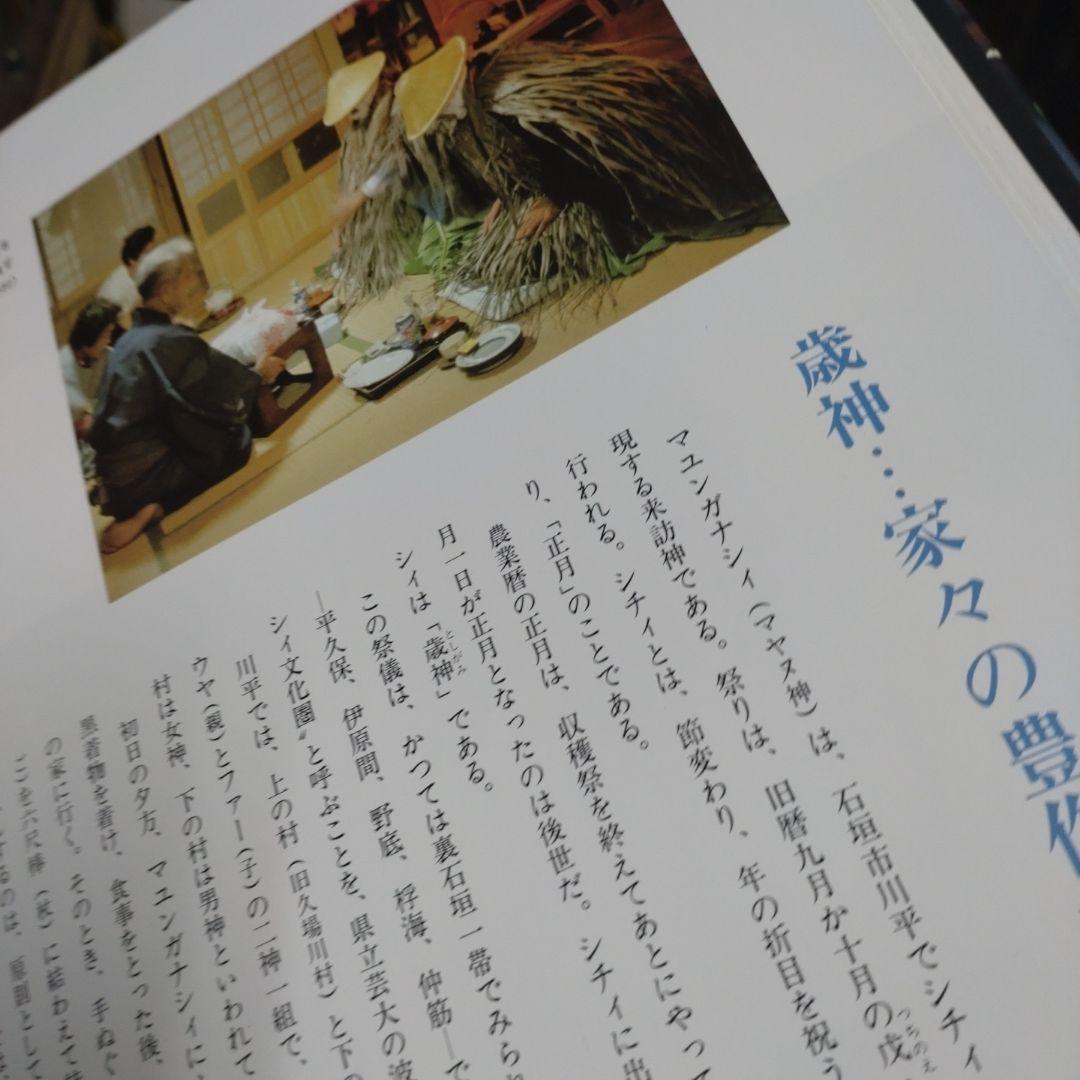 歳神…家々の豊作
マユンガナシィ（マヤヌ神）は、石垣市川平でシチィ
現する来訪神である。祭りは、旧暦九月か十月の戊
つちのえ
行われる。シチィとは、節変わり、年の折目を祝う
り、「正月」のことである。
農業暦の正月は、収穫祭を終えてあとにやって
月一日が正月となったのは後世だ。シチィに出
シィは「歳神」である。
としがみ
この祭儀は、かつては裏石垣一帯でみられ
―平久保、伊原間、野底、桴海、仲筋―で
シィ文化圏〟と呼ぶことを、県立芸大の波
川平では、上の村（旧久場川村）と下の
ウヤ（親）とファー（子）の二神一組で、
村は女神、下の村は男神といわれて
初日の夕方、マユンガナシィに
黒着物を着け、食事をとった後、
の家に行く。そのとき、手ぬぐ
ごを六尺棒（杖）に結わえて
のは、原則として